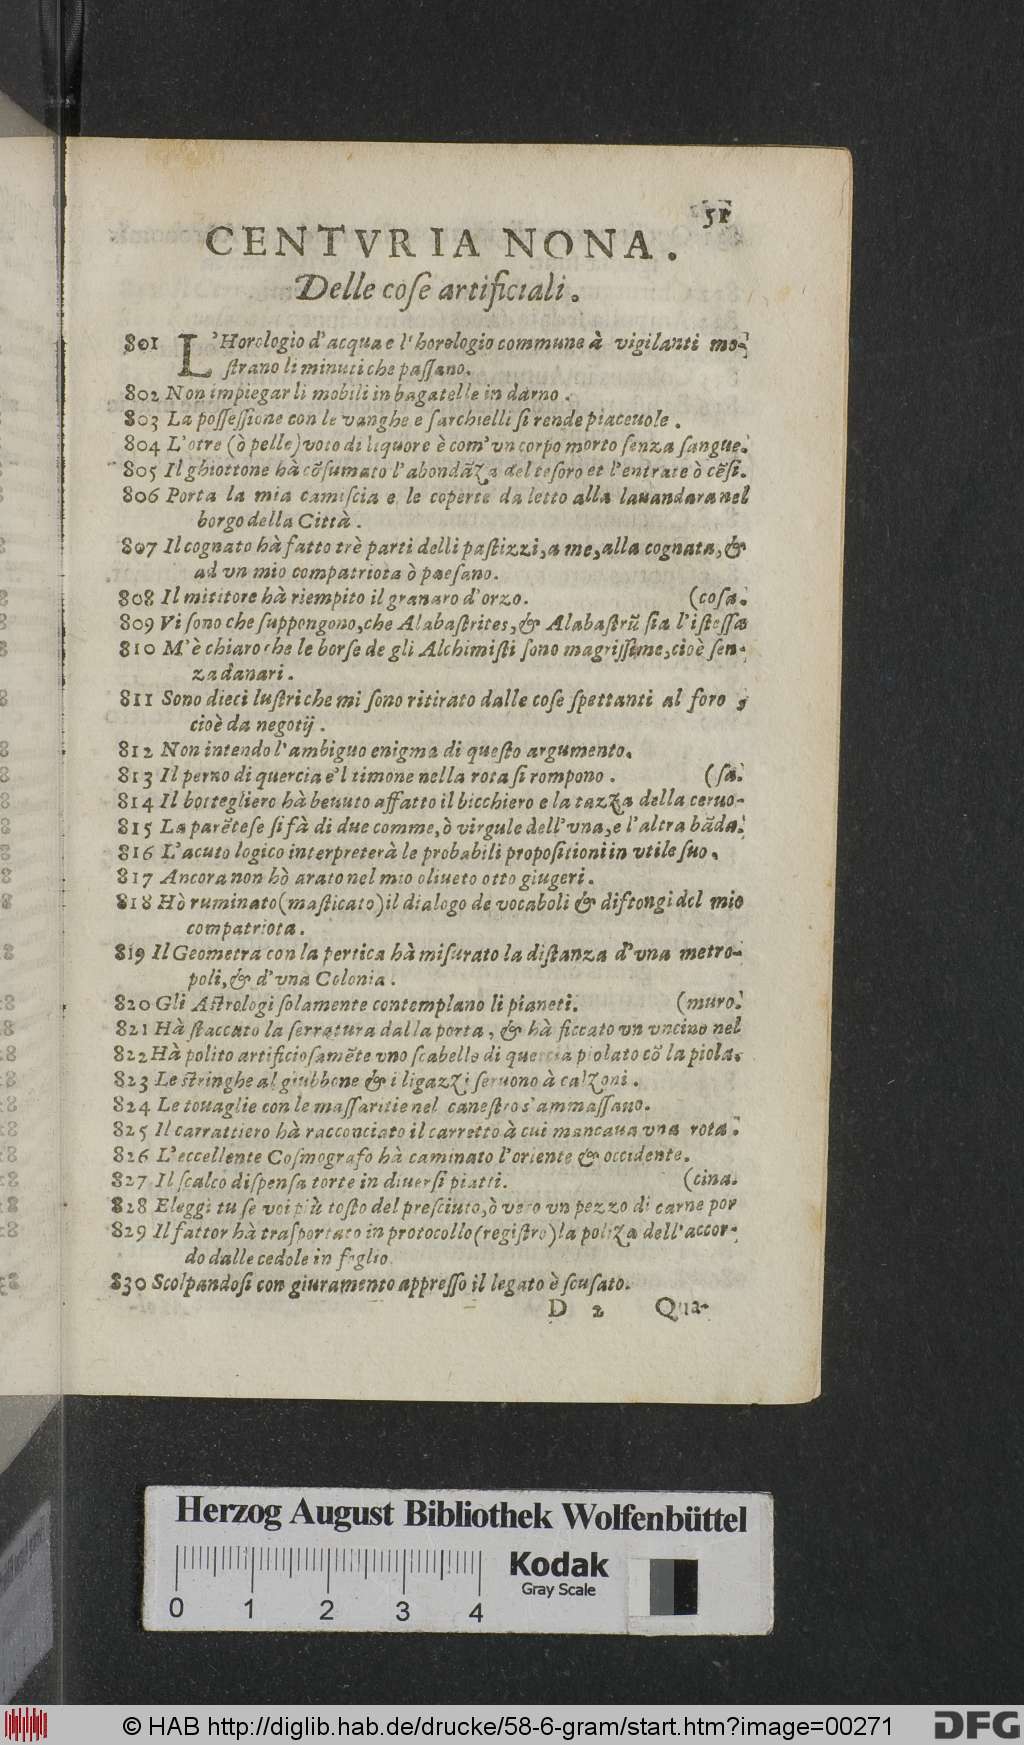 51
CENTVRIA NONA.
Delle cose artificiali.
801 L'Horologio d'acqua e l'horologio commune à vigilanti mo-
strano li minuti che passano.
802 Non impiegar li mobili in bagatelle in darno.
803 La possessione con le vanghe e sarchielli si rende piaceuole.
804 L'otre (ò pelle) voto di liquore è com' vn corpo morto senza sangue.
805 Il ghiottone hà cõsumato l'abondãza del tesoro et l'entrate ò cẽsi.
806 Porta la mia camiscia e le coperte da letto alla lauandara nel
borgo della Città.
807 Il cognato hà fatto trè parti delli pastizzi, a me, alla cognata, &
ad vn mio compatriota ò paesano.
808 Il mititore hà riempito il granaro d'orzo. (cosa.
809 Vi sono che suppongono, che Alabastrites, & Alabastrũ sia l'istessa
810 M'è chiaro che le borse de gli Alchimisti sono magrissime, cioè sen-
za danari.
811 Sono dieci lustri che mi sono ritirato dalle cose spettanti al foro,
cioè da negotij.
812 Non intendo l'ambiguo enigma di questo argumento.
813 Il perno di quercia e'l timone nella rota si rompono. (sa.
814 Il bottegliero hà beuuto affatto il bicchiero e la tazza della ceruo-
815 La parẽtese si fà di due comme, ò virgule dell' vna, e l'altra bãda.
816 L'acuto logico interpreterà le probabili propositioni in vtile suo.
817 Ancora non hò arato nel mio oliueto otto giugeri.
818 Hò ruminato (masticato) il dialogo de vocaboli & diftongi del mio
compatriota.
819 Il Geometra con la pertica hà misurato la distanza d'vna metro-
poli, & d'vna Colonia.
820 Gli Astrologi solamente contemplano li pianeti. (muro.
821 Hà staccato la serratura dalla porta, & hà ficcato vn vncino nel
822 Hà polito artificiosamẽte vno scabello di quercia piolato cõ la piola.
823 Le stringhe al giubbone & i ligazzi seruono à calzoni.
824 Le touaglie con le massaritie nel canestro s'ammassano.
825 Il carrattiero hà racconciato il carretto à cui mancaua vna rota.
826 L'eccellente Cosmografo hà caminato l'oriente & occidente.
827 Il scalco dispensa torte in diuersi piatti. (cina.
828 Eleggi tu se voi più tosto del presciuto, ò vero vn pezzo di carne por
829 Il fattor hà trasportato in protocollo (registro) la poliza dell'accor-
do dalle cedole in foglio.
830 Scolpandosi con giuramento appresso il legato è scusato.
D 2 Qua-
Herzog August Bibliothek Wolfenbüttel
Kodak
Gray Scale
0 1 2 3 4
© HAB http://diglib.hab.de/drucke/58-6-gram/start.htm?image=00271
DFG